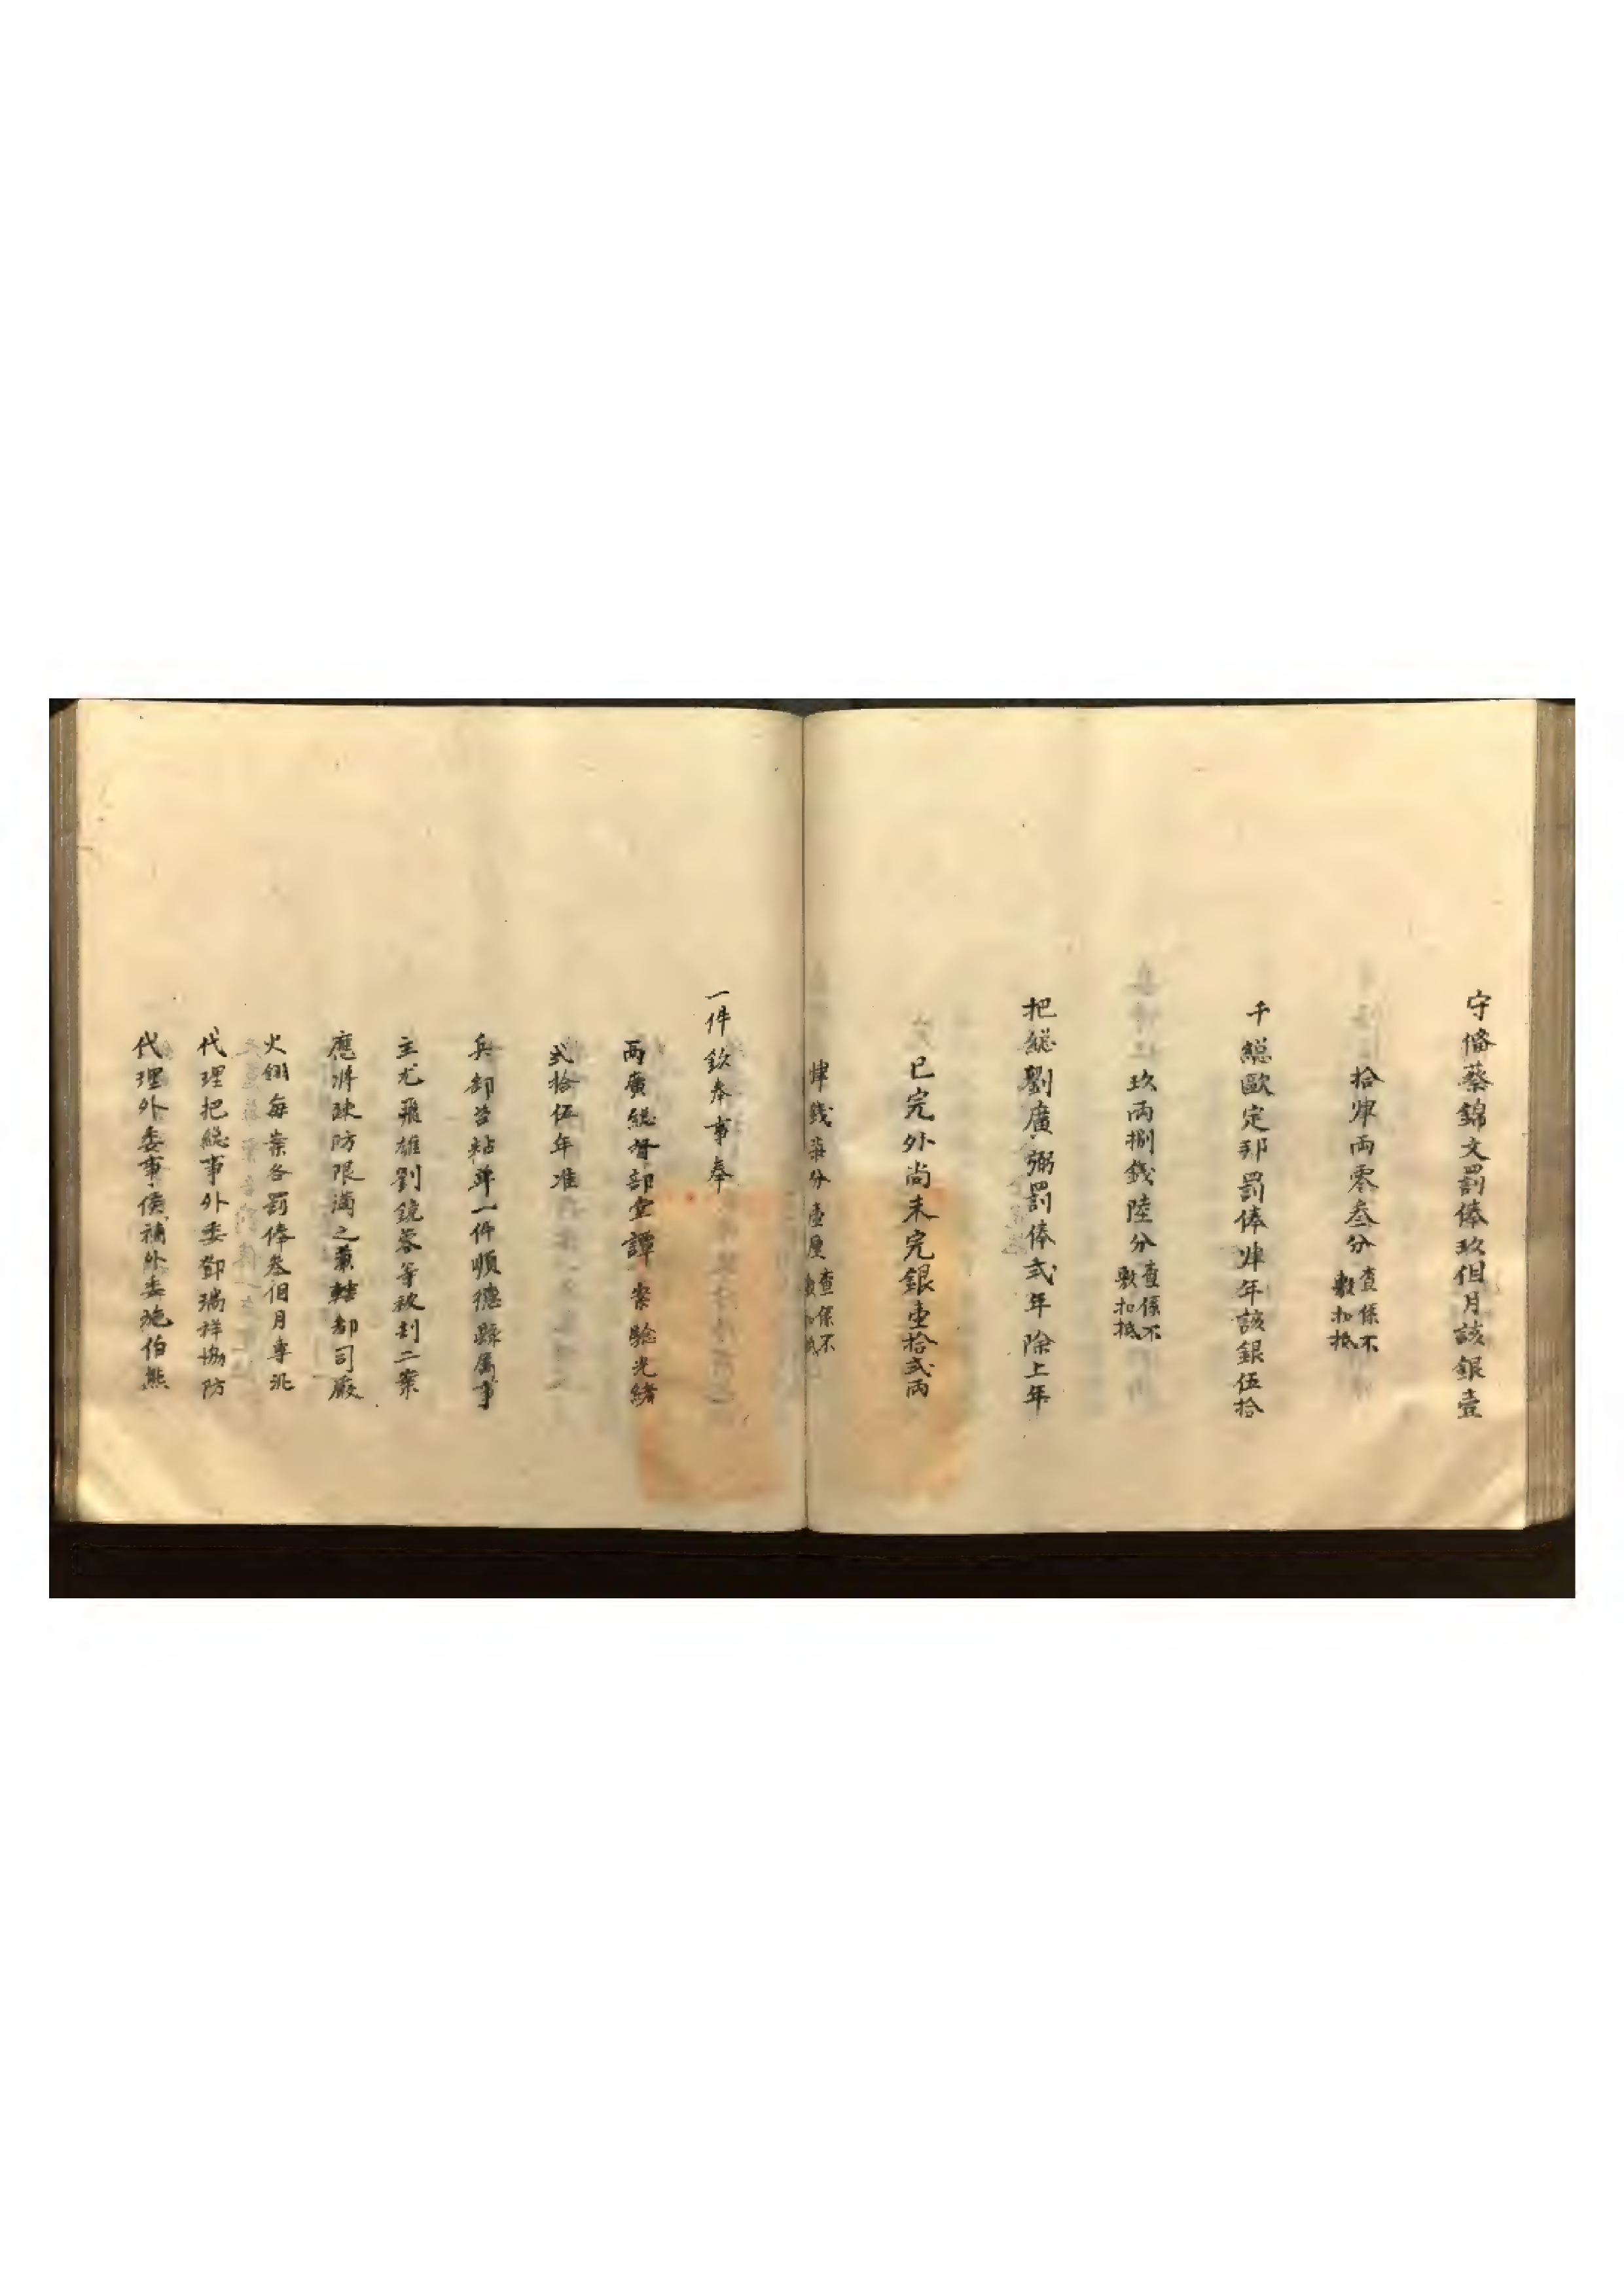 守備蔡錦文罰俸玖個月該銀壹
拾肆両零叁分查係不敷扣抵
千総歐定邦罰俸肆年該銀伍拾
玖両捌錢陸分查係不敷扣抵
把総劉廣弼罰俸弍年除上年
已完外尚未完銀壹拾弍両
肆錢柒分壹厘查係不敷扣抵
一件欽奉事奉
両廣総督部堂譚案驗光緒
弍拾伍年准
兵部咨粘单一件順德縣属事
主尤飛雄劉鏡蓉等被刦二案
應將疎防限滿之兼轄都司嚴
火翎每案各罰俸叁個月專汛
代理把総事外委鄧瑞祥協防
代理外委事候補外委施伯熊